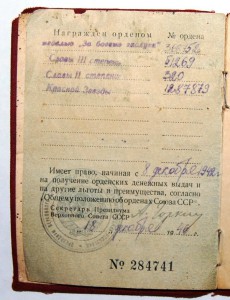 Награжден орденом № ордена
медалью „За боевые заслуги“
Славы III степени 51269
Славы II степени 320
Красной Звезды 1287879
Имеет право, начиная с декабря
на получение орденских денежных выдач и
на другие льготы и преимущества, согласно
Общему положению об орденах Союза ССР
Секретарь Президиума
Верховного Совета СССР
декабря
№ 284741